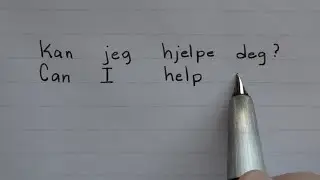 Kan jeg hjelpe deg?
Can I help